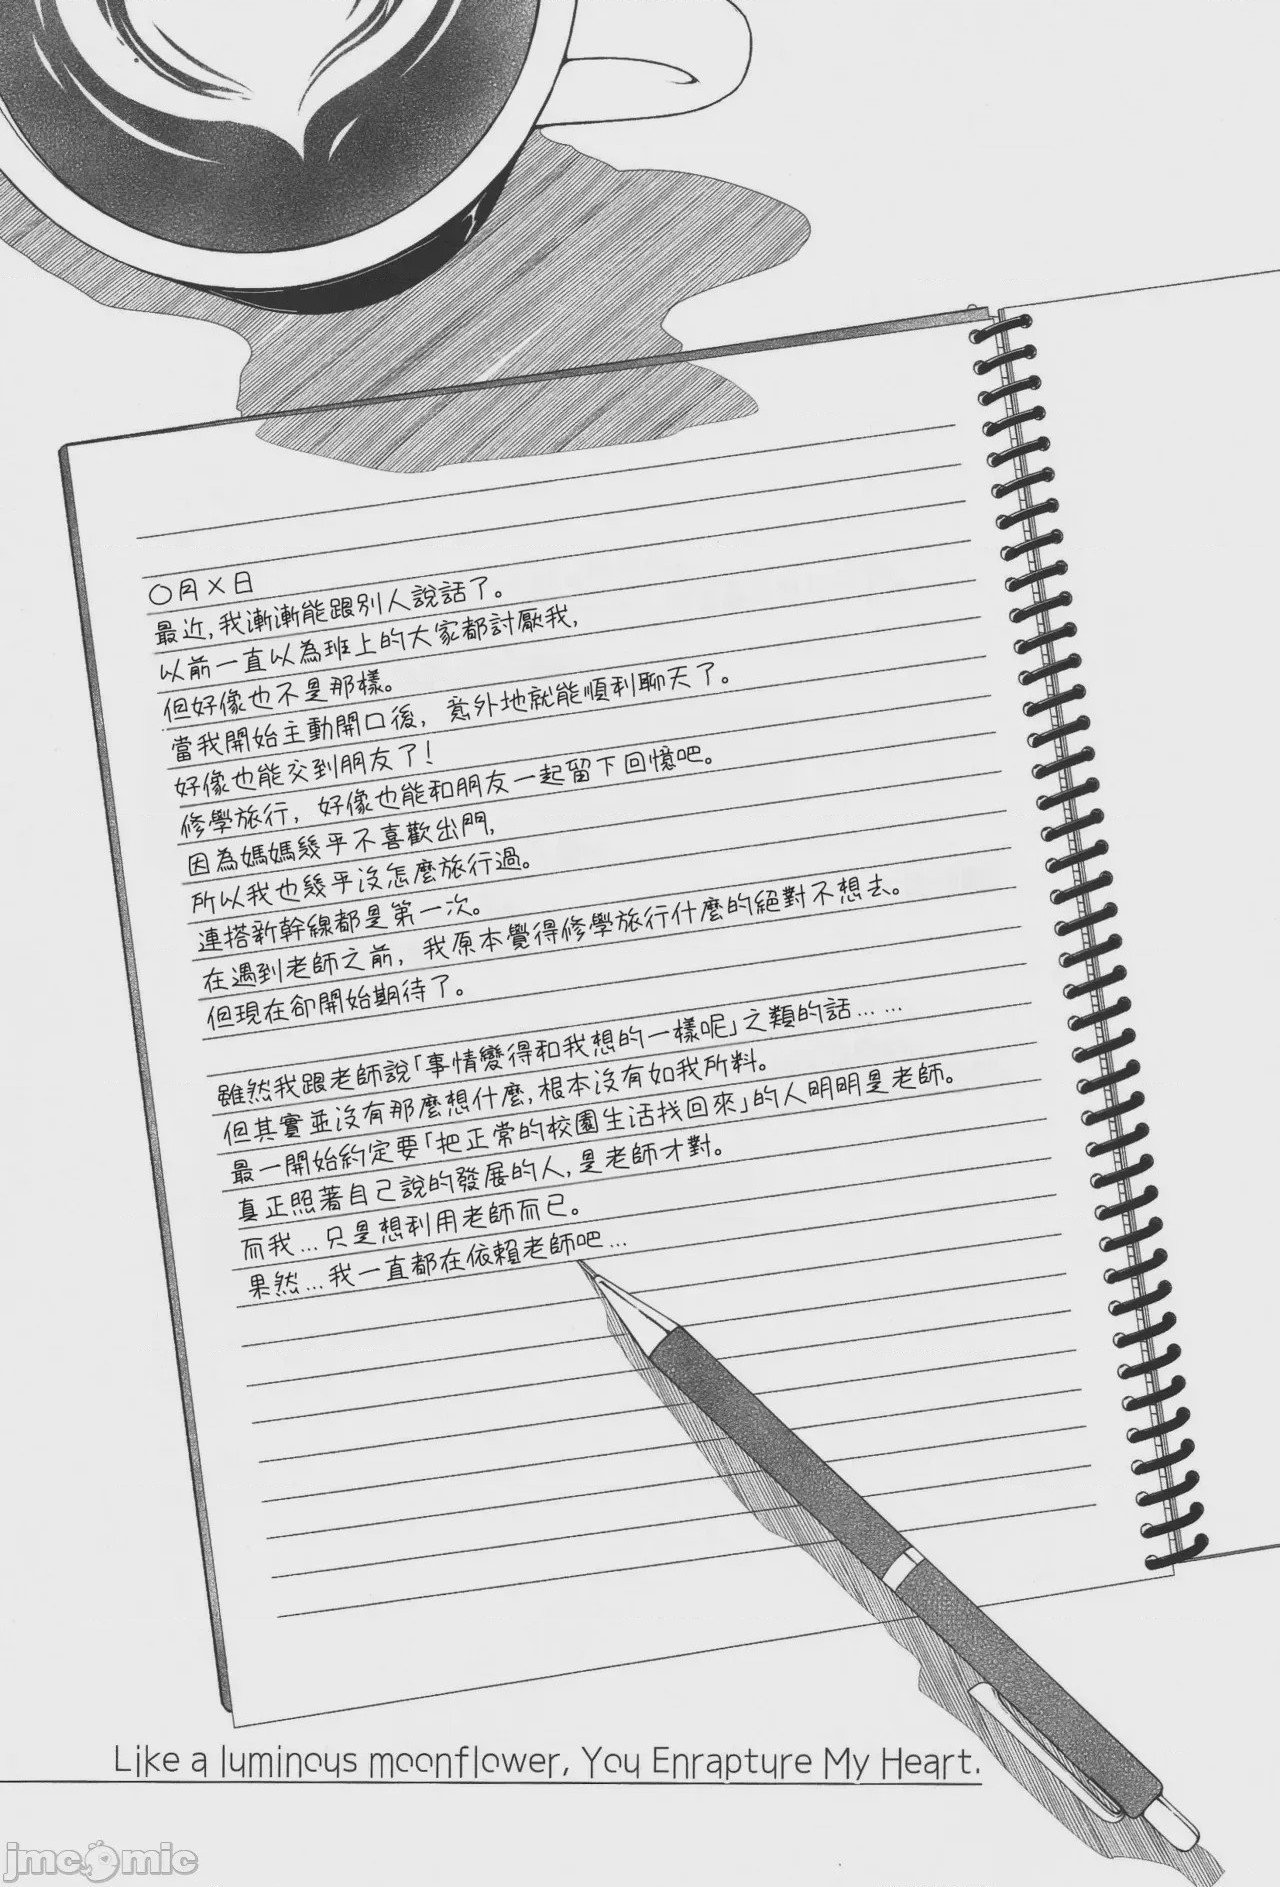 ○月×日
最近,我漸漸能跟別人說話了。
以前一直以為班上的大家都討厭我,
但好像也不是那樣。
當我開始主動開口後,意外地就能順利聊天了。
好像也能交到朋友了!
修學旅行,好像也能和朋友一起留下回憶吧。
因為媽媽幾乎不喜歡出門,
所以我也幾乎沒怎麼旅行過。
連搭新幹線都是第一次。
在遇到老師之前,我原本覺得修學旅行什麼的絕對不想去。
但現在卻開始期待了。
雖然我跟老師說「事情變得和我想的一樣呢」之類的話……
但其實並沒有那麼想什麼,根本沒有如我所料。
最一開始約定要「把正常的校園生活找回來」的人明明是老師。
真正照著自己說的發展的人,是老師才對。
而我…只是想利用老師而已。
果然…我一直都在依賴老師吧…
Like a luminous moonflower, You Enrapture My Heart.
jmcomic